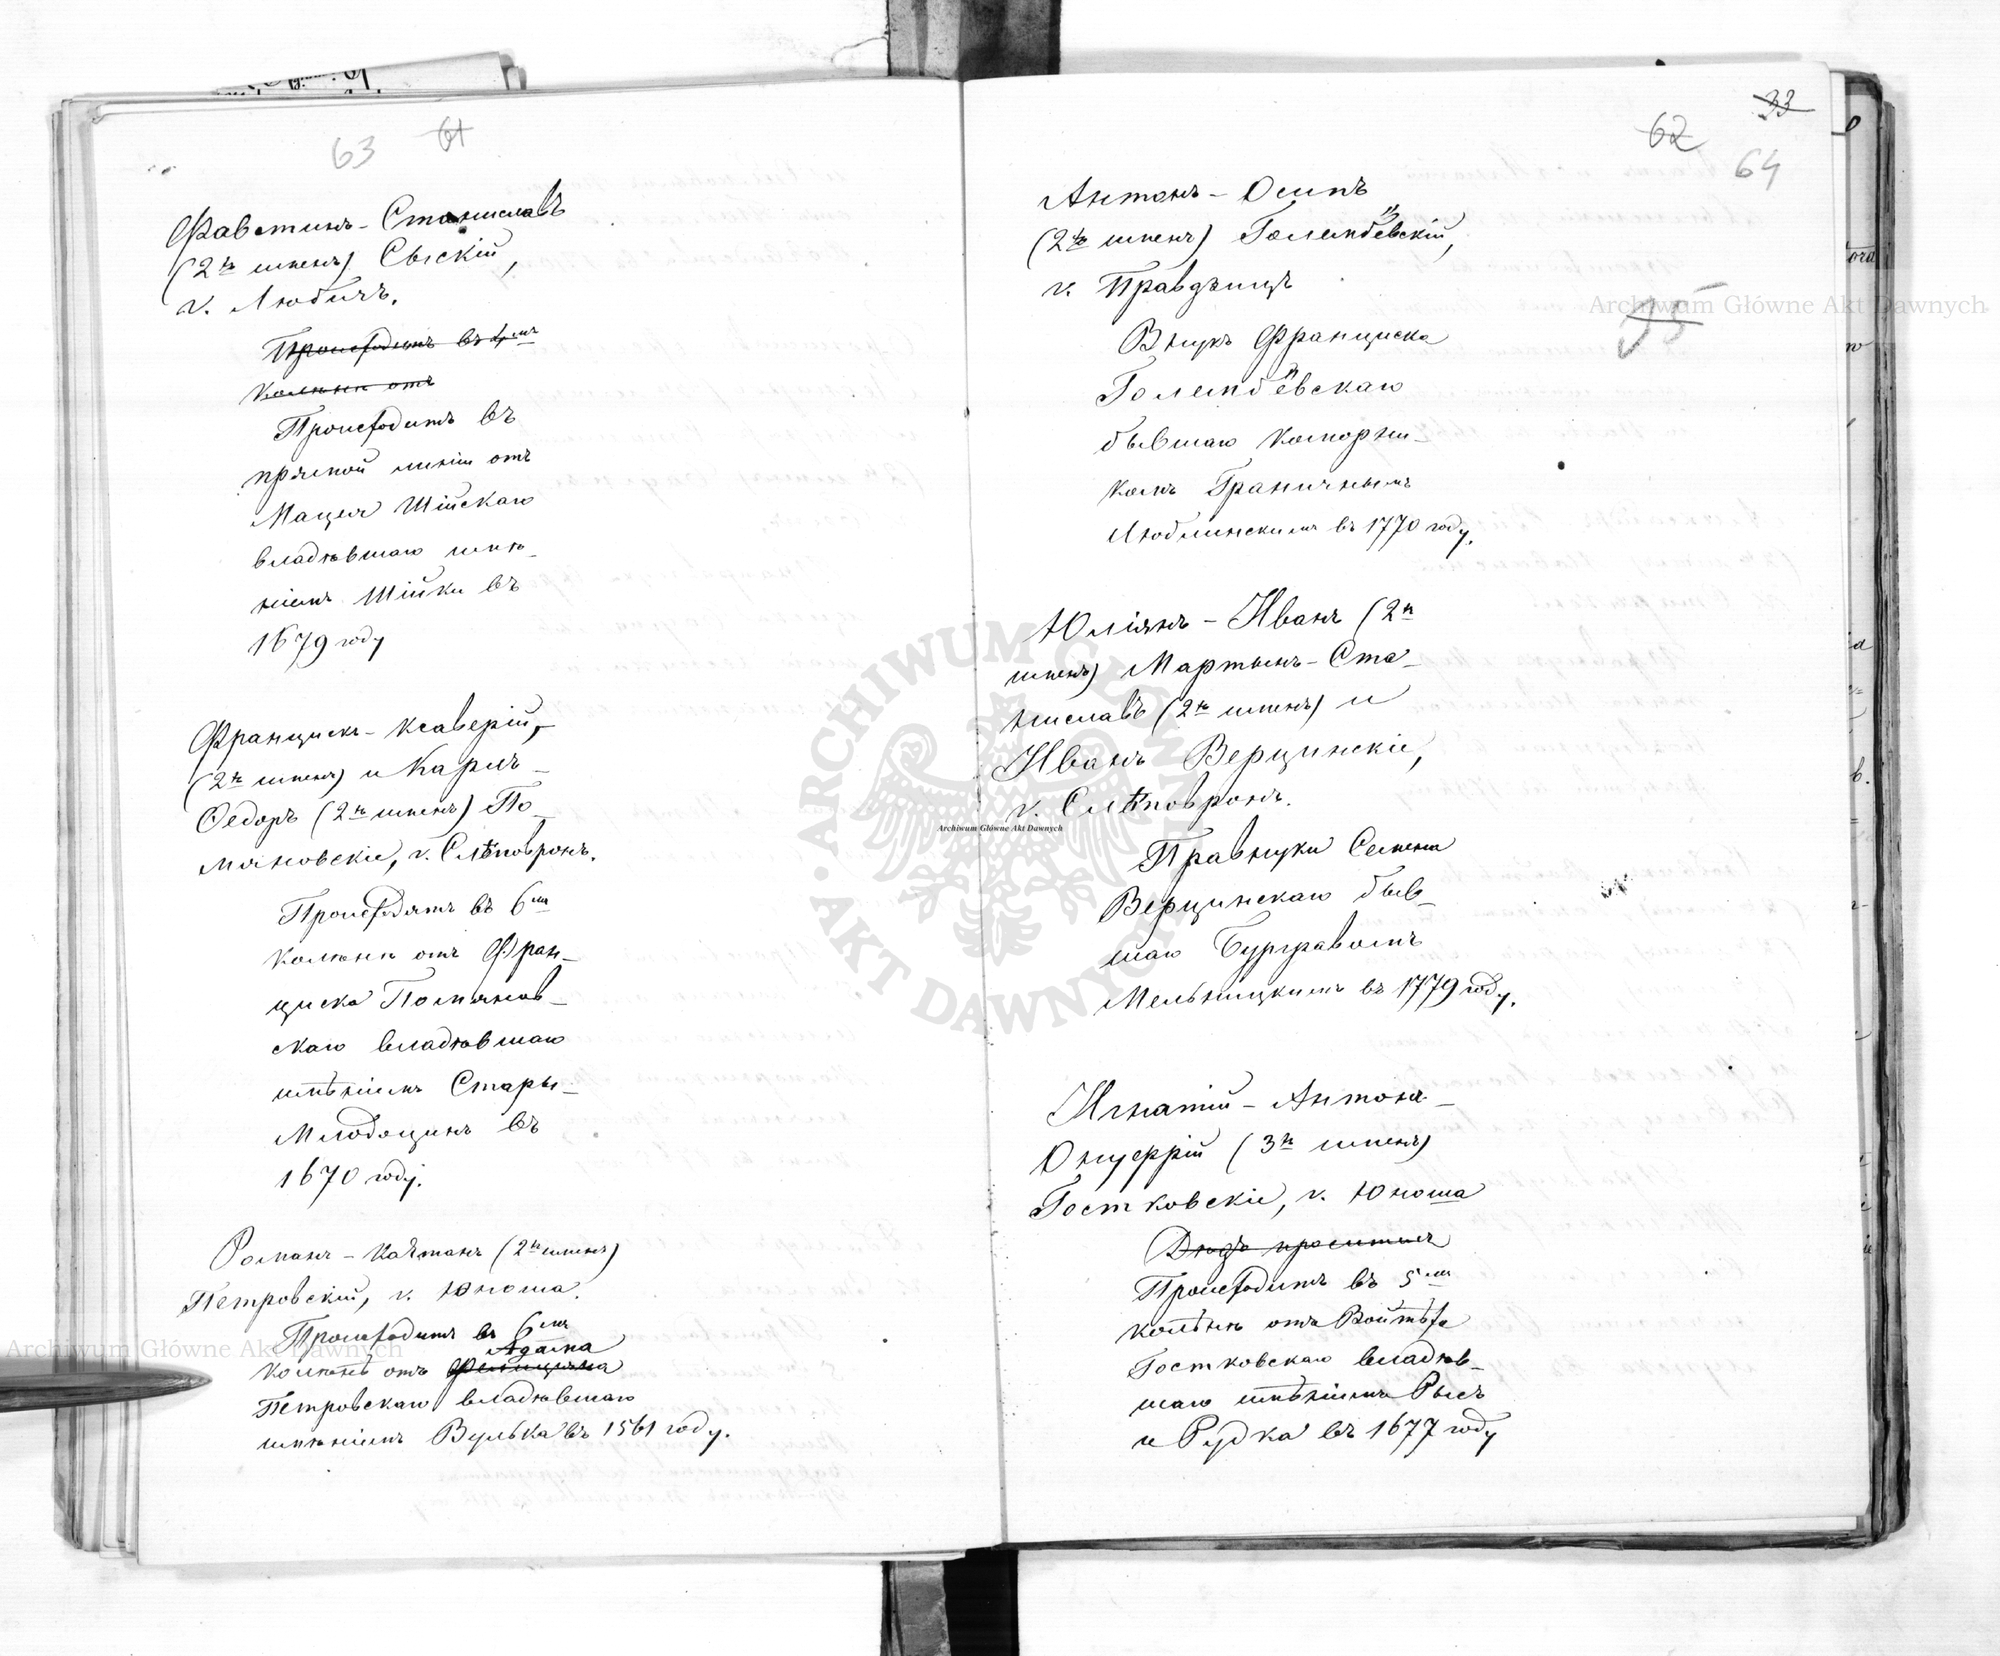 63 61
Фавстинъ-Станиславъ
(2хъ именъ) Сыскій,
г. Любичъ.
Происходитъ въ 4мъ
колѣнѣ отъ
Происходитъ въ
прямой линіи отъ
Мацея Шійскаго
владѣвшаго имѣ-
ніемъ Шійки въ
1679 году
Францискъ-Ксаверій,
(2хъ именъ) и Карлъ-
Ѳедоръ (2хъ именъ) По-
мяновскіе, г. Слѣповронъ.
Происходятъ въ 6мъ
колѣнѣ отъ Фран-
циска Помянов-
скаго владѣвшаго
имѣніемъ Стары-
Млодоцинъ въ
1670 году.
Романъ-Каэтанъ (2хъ именъ)
Петровскій, г. Юноша.
Происходитъ въ 6мъ
Адама
колѣнѣ отъ Фелиціяна
Петровскаго владѣвшаго
имѣніемъ Вулька въ 1561 году.
33
62
64
Антонъ-Осипъ
(2хъ именъ) Голембёвскій,
г. Правдзицъ
75
Внукъ Франциска
Голембёвскаго
бывшаго Коморни-
комъ Граничнымъ
Люблинскимъ въ 1770 году.
Юліянъ-Иванъ (2хъ
именъ) Мартынъ-Ста-
ниславъ (2хъ именъ) и
Иванъ Верцинскіе,
г. Слѣповронъ.
Правнуки Семена
Верцинскаго быв-
шаго Бурграбомъ
Мельницкимъ въ 1779 году.
Игнатій-Антонъ-
Онуеррій (3хъ именъ)
Гостковскіе, г. Юноша
Происходитъ въ 5мъ
колѣнѣ отъ Войтѣха
Гостковскаго владѣв-
шаго имѣніемъ Рысь
и Рудка въ 1677 году
Archiwum Główne Akt Dawnych
Archiwum Główne Akt Dawnych
Archiwum Główne Akt Dawnych
ARCHIWUM GŁÓWNE AKT DAWNYCH